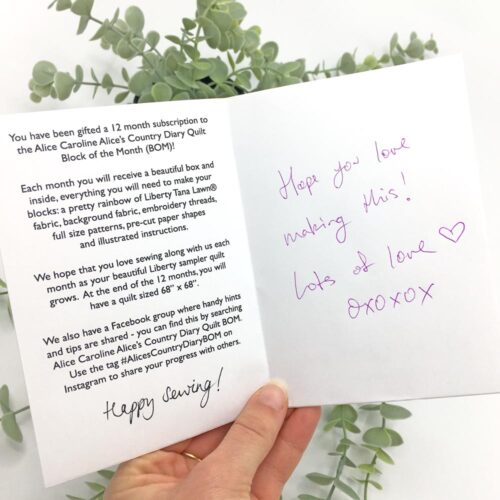 You have been gifted a 12 month subscription to
the Alice Caroline Alice's Country Diary Quilt
Block of the Month (BOM)!
Each month you will receive a beautiful box and
inside, everything you will need to make your
blocks: a pretty rainbow of Liberty Tana Lawn®
fabric, background fabric, embroidery threads,
full size patterns, pre-cut paper shapes
and illustrated instructions.
We hope that you love sewing along with us each
month as your beautiful Liberty sampler quilt
grows. At the end of the 12 months, you will
have a quilt sized 68" x 68".
We also have a Facebook group where handy hints
and tips are shared - you can find this by searching
Alice Caroline Alice's Country Diary Quilt BOM.
Use the tag #AlicesCountryDiaryBOM on
Instagram to share your progress with others.
Happy Sewing!
Hope you love
making this!
Lots of love ♡
oxoxox